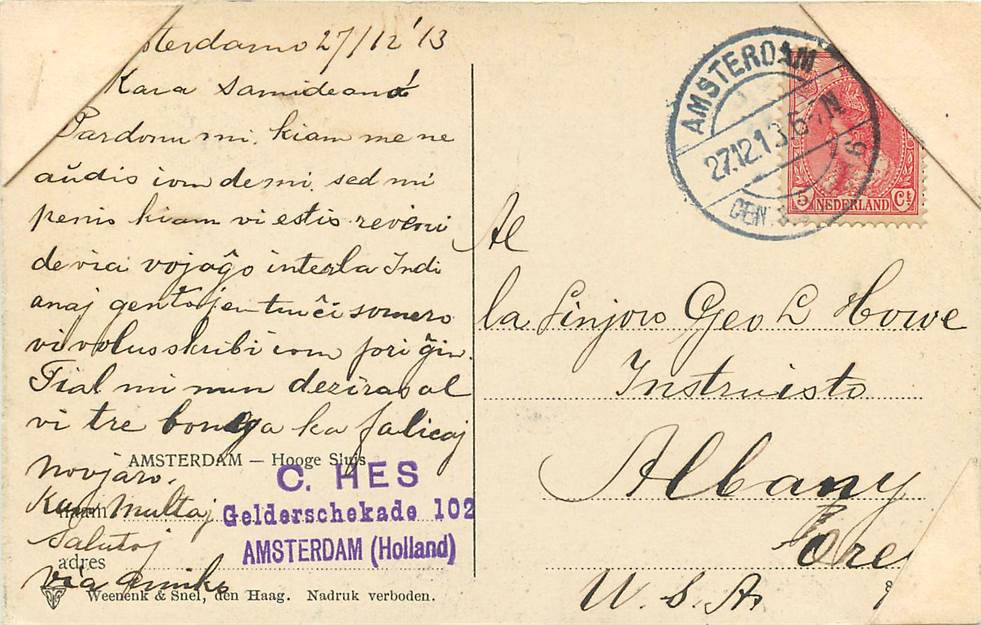 sterdamo 27/12 '13
Kara samideano
Pardonu mi, kiam me ne
aŭdis iom de mi, sed mi
penis kiam vi estis revěni
de via vojaĝo inter la Indi
anaj gentoj en tiu ĉi somero
vi volus skribi iom pri ĝin.
Tial mi nun deziras al
vi tre bonega ka falicaj
novjaro.
Kun Multaj
Salutoj
via amiko
AMSTERDAM — Hooge Sluis
naam
adres
C. HES
Gelderschekade 102
AMSTERDAM (Holland)
Weenenk & Snel, den Haag. Nadruk verboden.
AMSTERDAM
27.12.13 6-7N
CEN.S
6
5 NEDERLAND Ct
Al
la Sinjoro Geo L Howe
Instruisto
Albany
Ore
U.S.A.